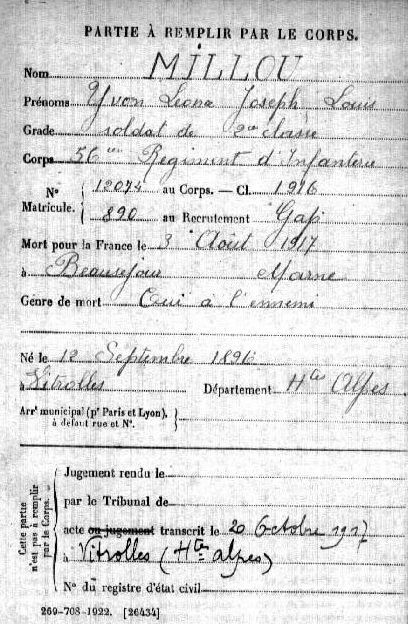 PARTIE À REMPLIR PAR LE CORPS.
Nom MILLOU
Prénoms Yvon Léona Joseph Louis
Grade soldat de 2me classe
Corps 56me Régiment d'Infanterie
N° 12074 au Corps. — Cl. 1916
Matricule. 890 au Recrutement Gap
Mort pour la France le 3 Août 1917
à Beauséjour Marne
Genre de mort Tué à l'ennemi
Né le 12 Septembre 1896
à Vitrolles Département Htes Alpes
Arrt municipal (pr Paris et Lyon),
à défaut rue et N°.
Cette partie
n'est pas à remplir
par le Corps.
Jugement rendu le
par le Tribunal de
acte ou jugement transcrit le 20 Octobre 1917
à Vitrolles (Htes alpes)
N° du registre d'état civil
269-708-1922. [26434]